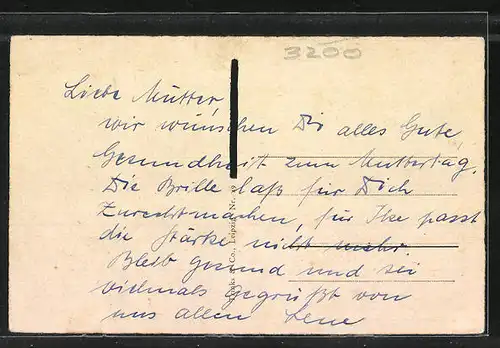 3200
Liebe Mutter,
wir wünschen Dir alles Gute,
Gesundheit zum Muttertag.
Die Brille laß für Dich
Zurechtmachen, für Ihr passt
die Stärke nicht mehr
Bleib gesund und sei
vielmals gegrüßt von
uns allen Lene
& Co., Leipzig Nr. 49